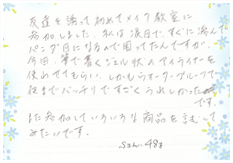 友達を誘って初めてメイク教室に
参加しました。私は涙目で、すぐに滲んで
パンダ目になるので困ってたんですが、
今回、筆で書くジェル状のアイライナーを
使わせてもらい、しかもウォータープルーフで
夜までバッチリですごくうれしかった
です。
また参加していろいろな商品を試して
みたいです。
S.さん 48才